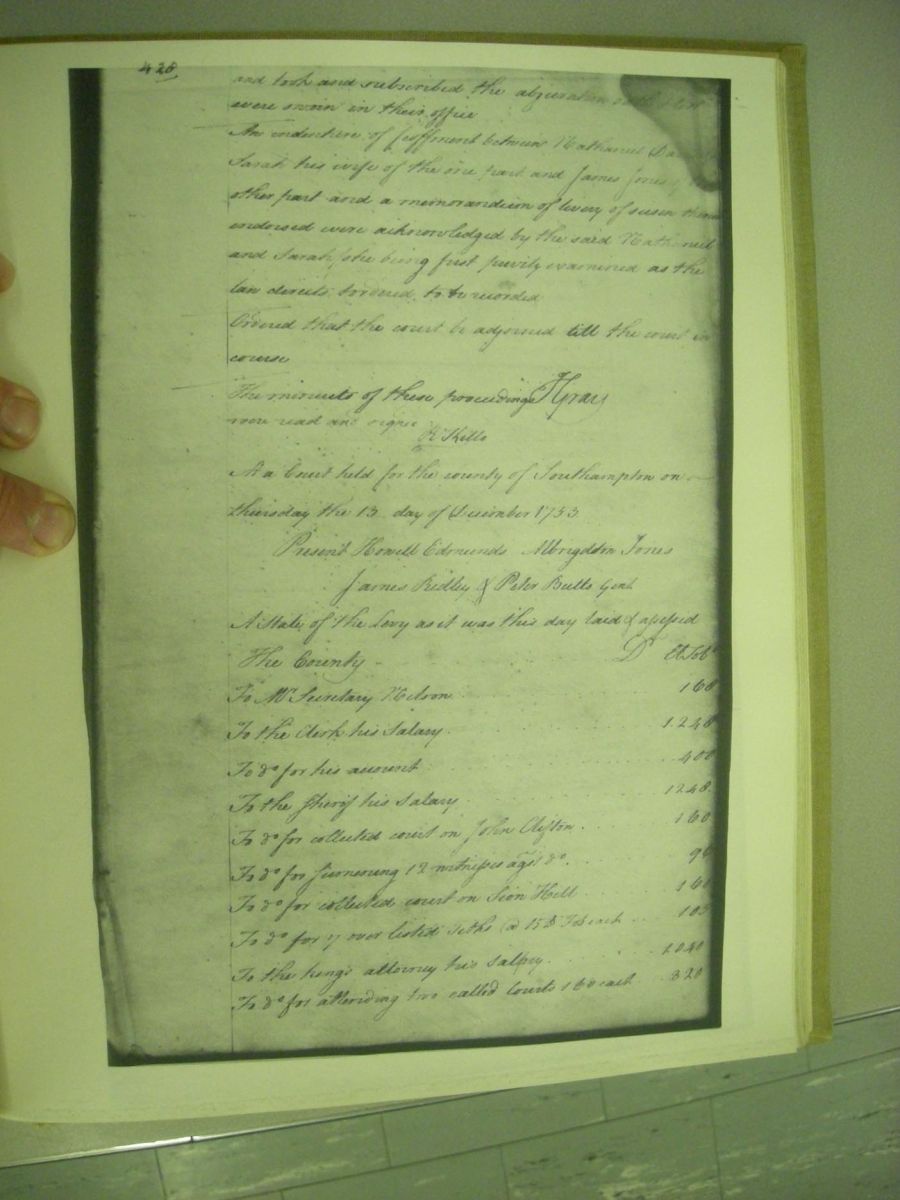 428
and took and subscribed the abjuration oath
were sworn in their office
An indenture of feoffment between Nathaniel
Sarah his wife of the one part and James Jones
other part and a memorandum of livery of seisen thereon
endorsed were acknowledged by the said Nathaniel
and Sarah she being first privily examined as the
law directs, & ordered to be recorded
Ordered that the court be adjorned till the court in
course
The minuets of these proceedings JGray
were read and signed
R Kello
At a Court held for the county of Southampton on
thursday the 13 day of December 1753
Present Howell Edmunds Albrigdton Jones
James Ridley & Peter Butts Gent
A State of the Levy as it was this day laid & assessed
The County Dr lb Tobo
To Mr Secretary Nelson 160
To the Clerk his Salary 1248
To do for his account 400
To the Sherif his Salary 1248
To do for collected court on John Clifton 160
To do for sumoning 12 witnesses agst do. 96
To do for collected court on Sion Hill 160
To do for 7 over listed Tiths @ 15 lb Tob each 105
To the kings attorney his Salary 1040
To do for attending two called Courts 160 each 320